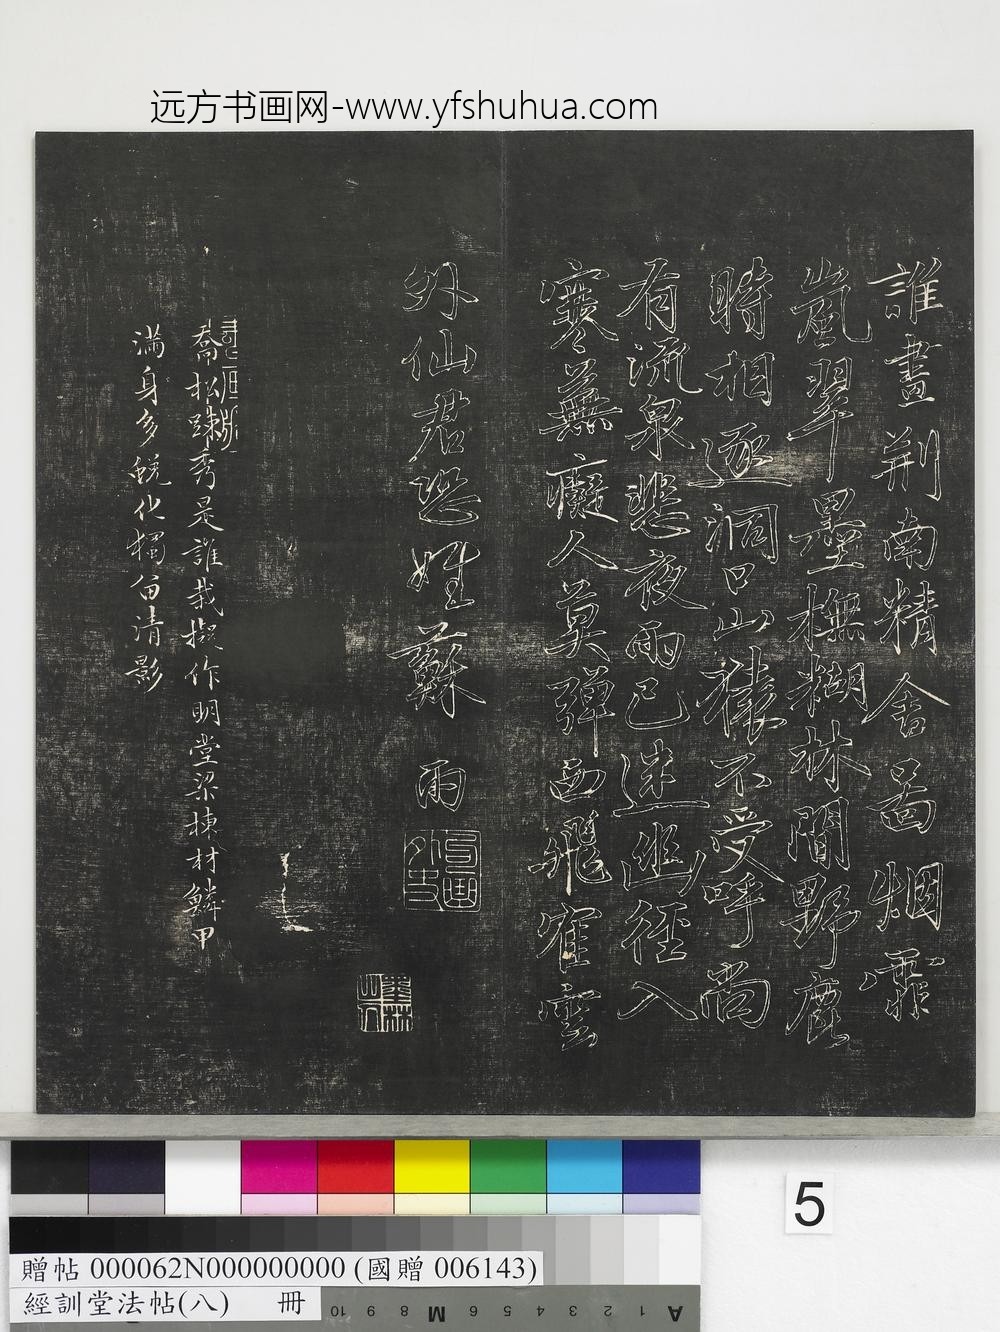 远方书画网-www.yfshuhua.com
誰畫荆南精舍啚烟霏
嵐翠墨橅糊林間野鹿
時相逐洞口山猿不受呼尚
有流泉悲夜雨已迷幽徑入
寒蕪癡人莫弹西飛寉雲
外仙君恐姓蘇 雨
喬松踈秀是誰栽擬作明堂梁棟材鱗甲
满身多蛻化獨留清影
墨林
5
贈帖 000062N000000000 (國贈 006143)
經訓堂法帖(八) 冊
10 9 8 M 6 5 4 3 2 1 A